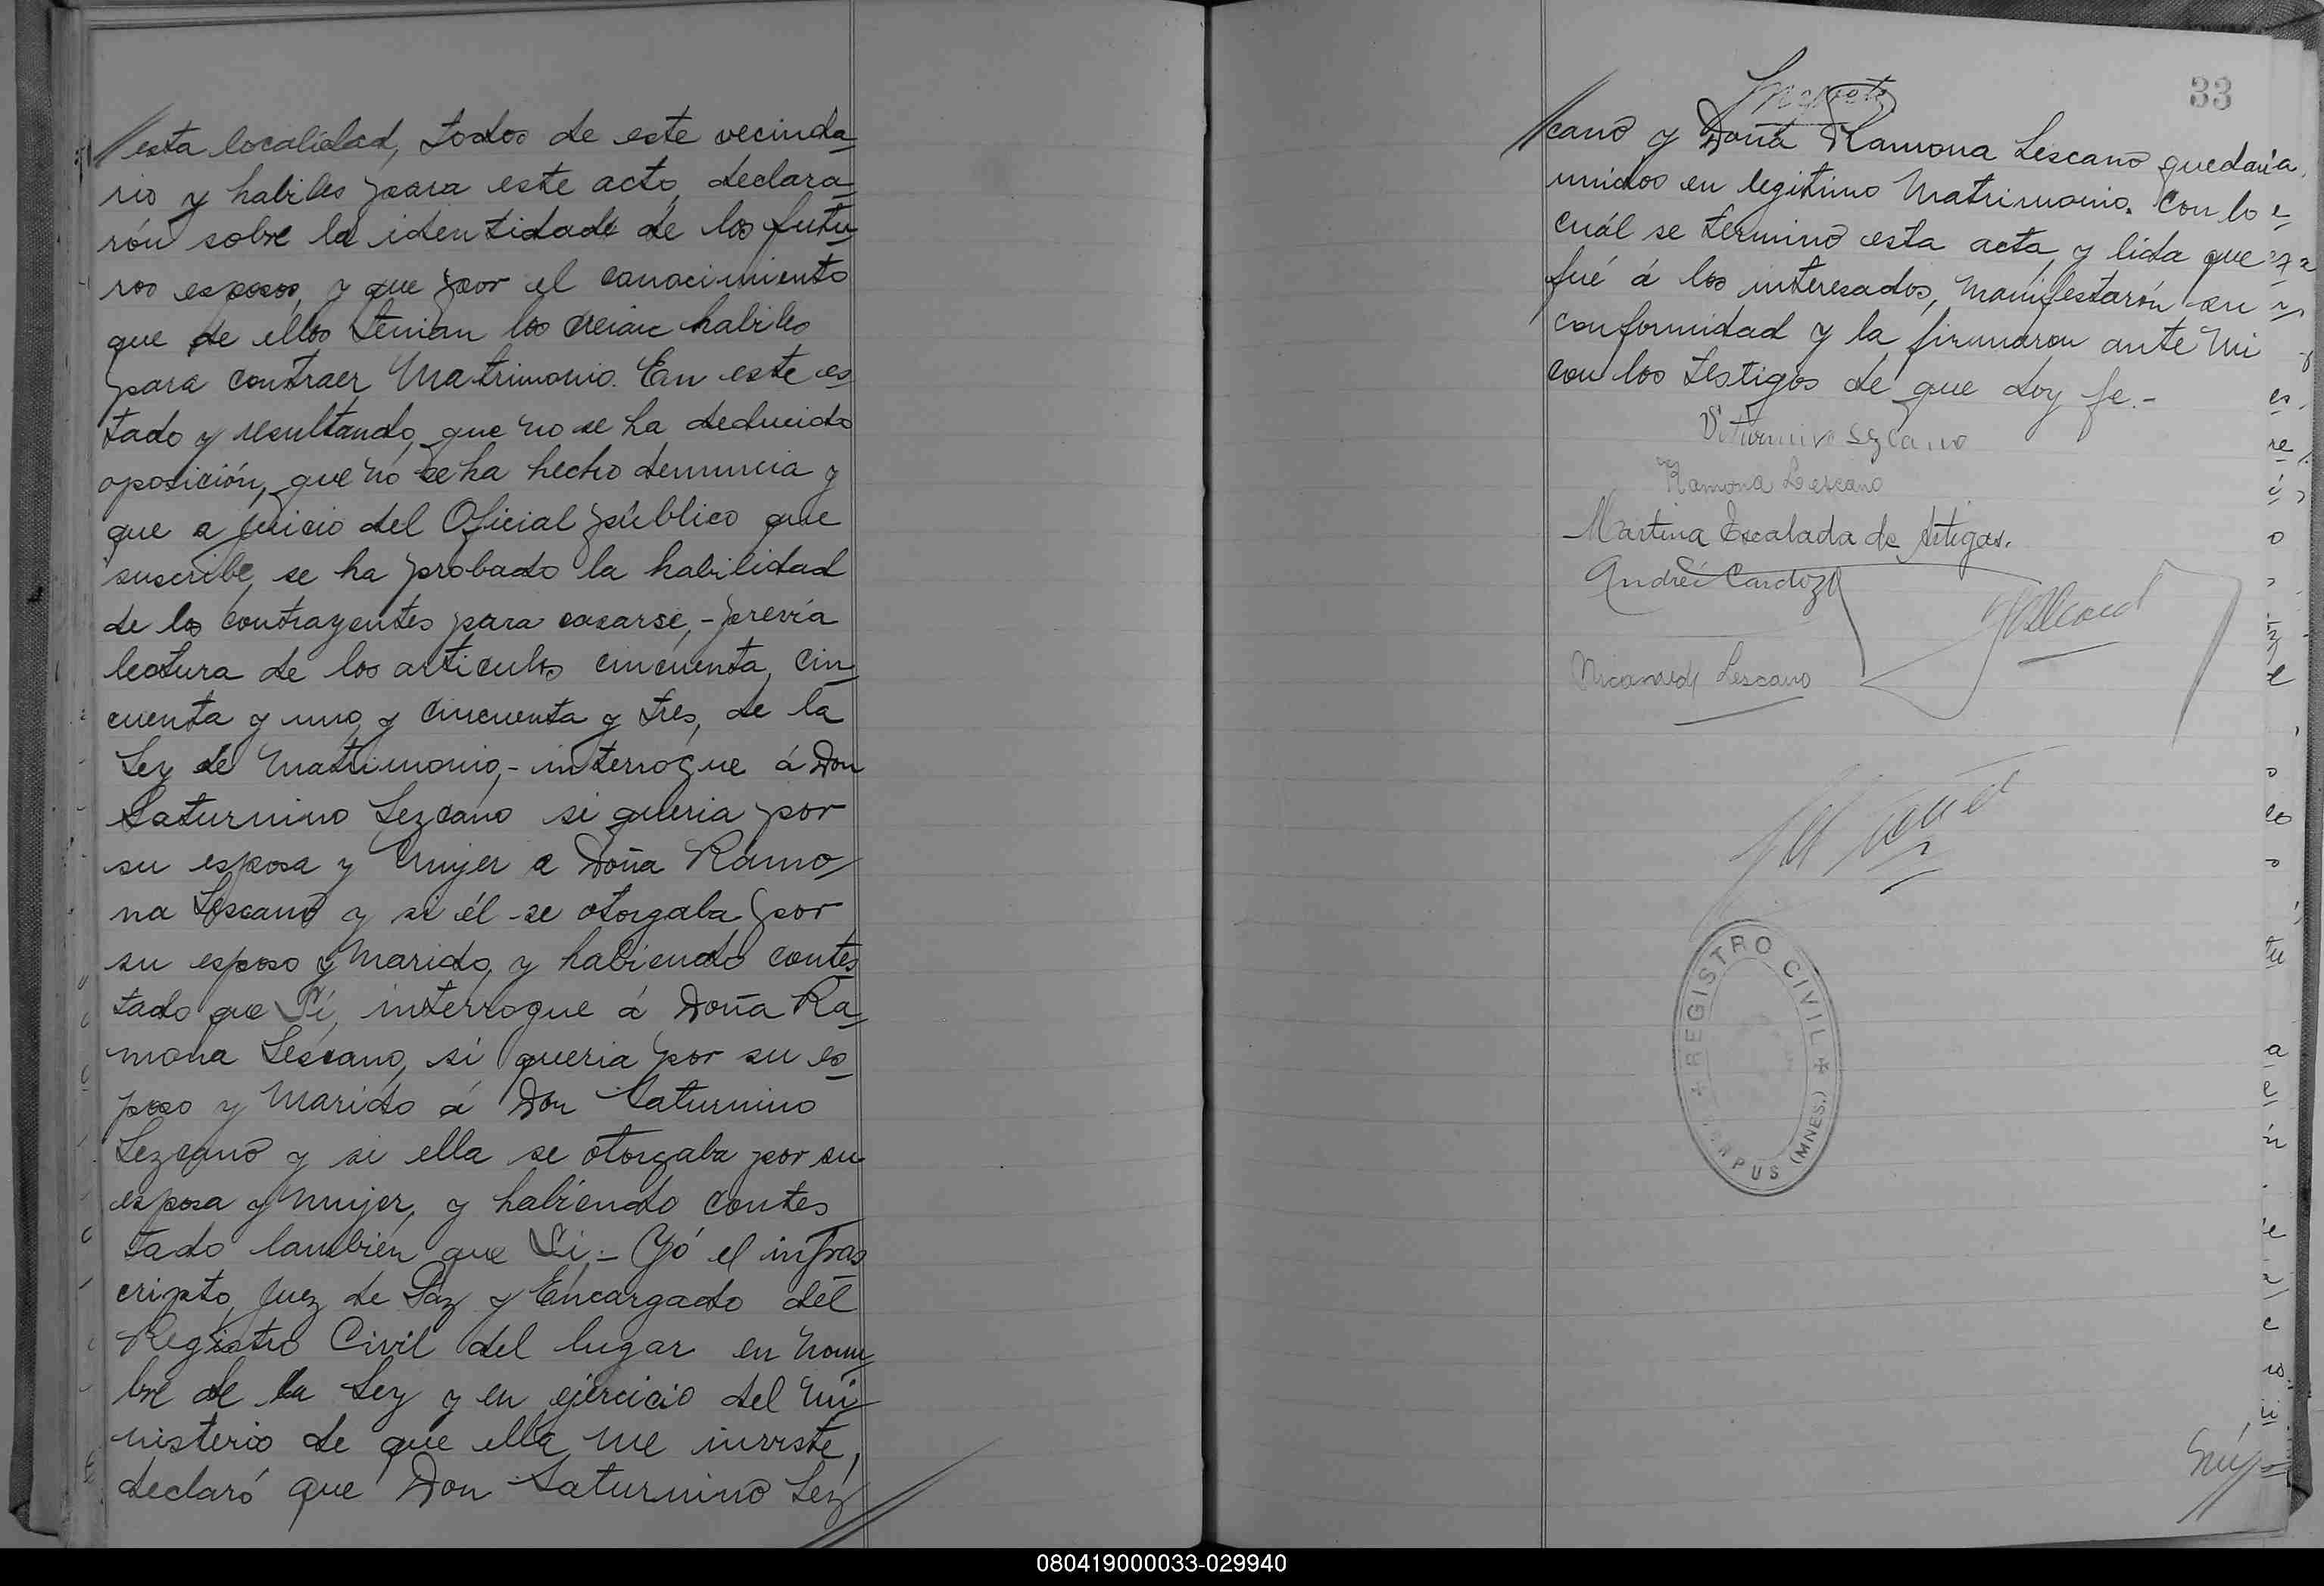 //esta localidad, todos de este vecinda
rio y habiles para este acto, declara
rón sobre la identidad de los futu
ros esposos, y que por el conocimiento
que de ellos tenian los creian habiles
para contraer Matrimonio. En este es
tado y resultando, que no se ha deducido
oposición, que nó se ha hecho denuncia y
que a juicio del Oficial público que
suscribe, se ha probado la habilidad
de los contrayentes para casarse, - previa
lectura de los articulos cincuenta, cin
cuenta y uno, y cincuenta y tres, de la
Ley de Matrimonio, - interrogue á Don
Saturnino Lezcano si queria por
su esposa y Mujer a Doña Ramo
na Lescano y si él se otorgaba por
su esposo y Marido, y habiendo contes
tado que Sí, interrogue á Doña Ra
mona Lescano, si queria por su es
poso y Marido á Don Saturnino
Lezcano y si ella se otorgaba por su
esposa y Mujer, y habiendo contes
tado tambien que Si. - Yó el infras
cripto, Juez de Paz y Encargado del
Registro Civil del lugar en nom
bre de la Ley y en ejercicio del Mi
nisterio de que ella me inviste,
declaró que Don Saturnino Lez
33
//cano y Doña Ramona Lescano quedaria
unidos en legitimo Matrimonio. Con lo
cuál se terminó esta acta, y lida que
fué á los interesados, manifestarón su
conformidad y la firmaron ante Mi
con los testigos de que doy fe. -
Saturnino Lezcano
Ramona Lescano
Martina Escalada de Artigas.
Andrés Cardozo
Lescano
REGISTRO CIVIL
CORPUS (MNES.)
080419000033-029940